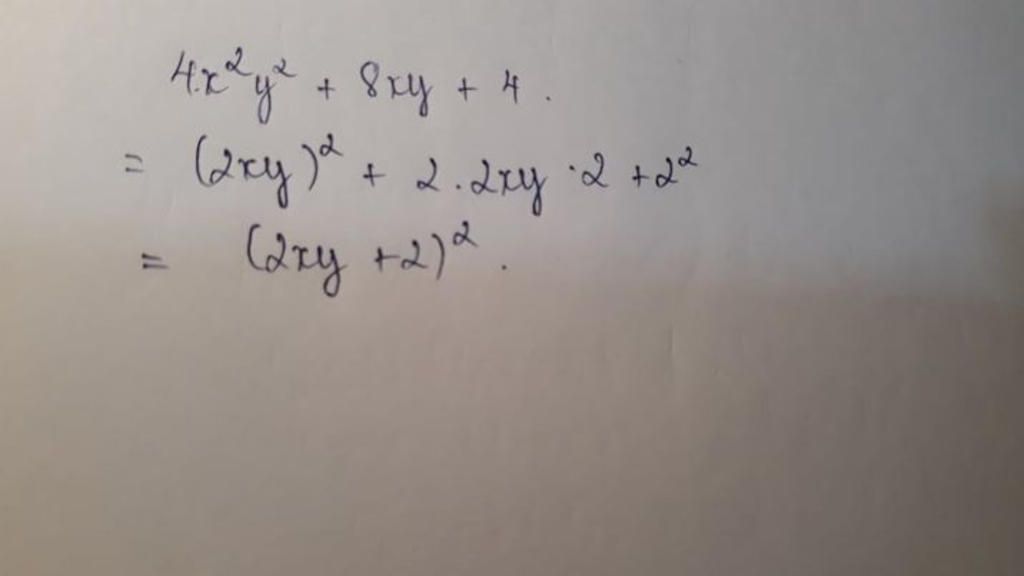 4x²y² + 8xy + 4 .
= (2xy)² + 2 . 2xy · 2 + 2²
= (2xy + 2)² .